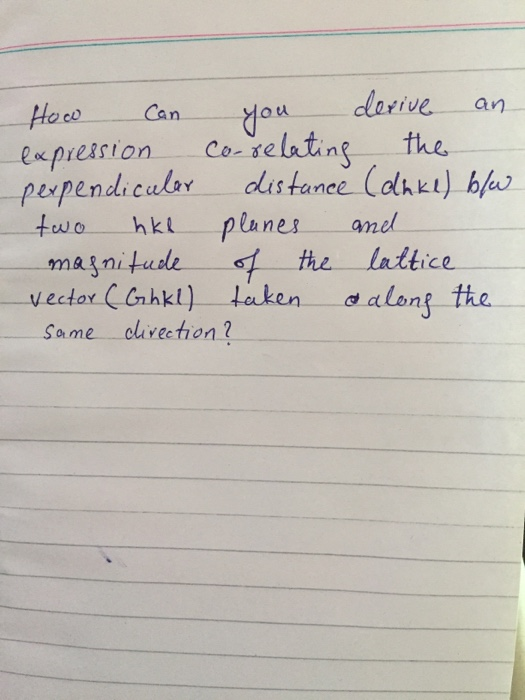 How can you derive an
expression co-relating the
perpendicular distance (dhkl) b/w
two hkl planes and
magnitude of the lattice
vector (Ghkl) taken along the
same direction?